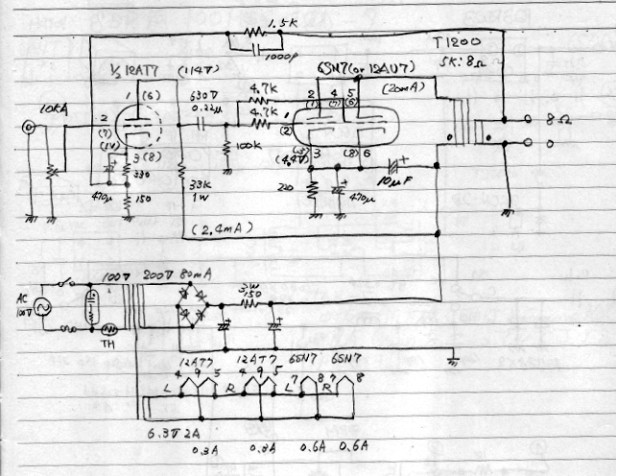 1.5K
1000p
T1200
5K:8Ω
½ 12AT7 (114V)
6SN7(or 12AU7)
(20mA)
1 (6)
630V
0.22μ
4.7K
4.7K
2 4 5
(1) (5) (6)
10KA
2
(7)
(1V)
3 (8)
330
470μ
150
1
(2)
100K
3
(4.4V)
(8) 6
10μF
220
470μ
33K
1W
8Ω
0
(2.4mA)
100V
200V 80mA
AC
100V
TH
3W
150
12AT7 12AT7 6SN7 6SN7
4 9 5 4 9 5 7 8 7 8
L R L R
6.3V 2A
0.3A 0.3A 0.6A 0.6A